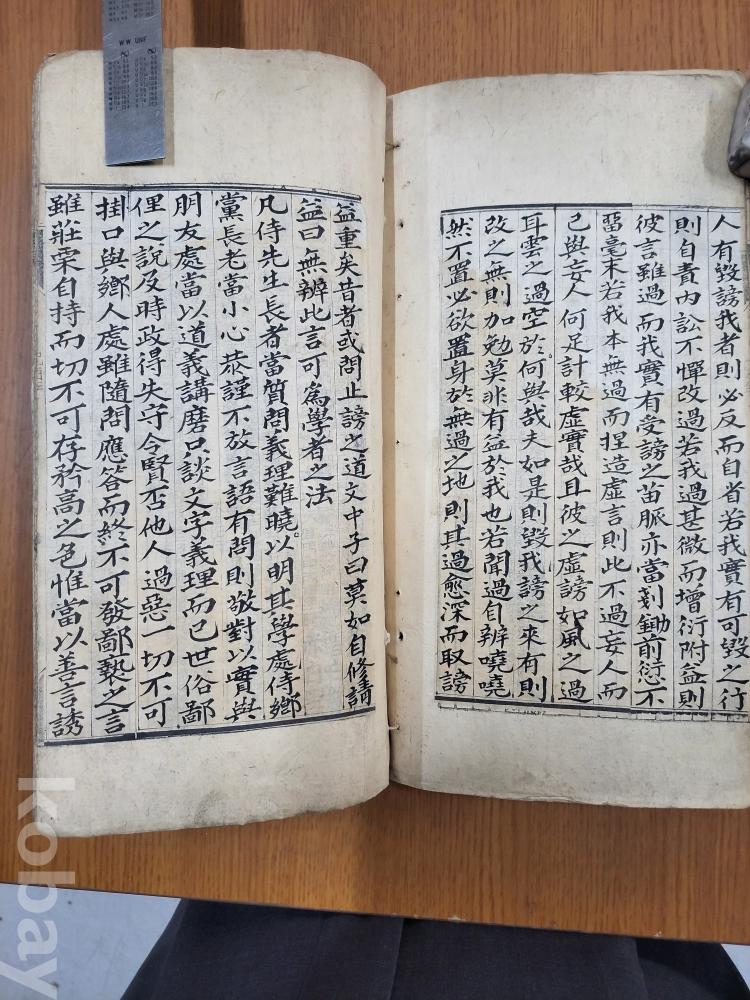 人有毀謗我者則必反而自省若我實有可毀之行
則自責內訟不憚改過若我過甚微而增衍附益則
彼言雖過而我實有受謗之苗脈亦當剗鋤前愆不
留毫末若我本無過而捏造虛言則此不過妄人而
已與妄人何足計較虛實哉且彼之虛謗如風之過
耳雲之過空於何與哉夫如是則毀我謗之來有則
改之無則加勉莫非有益於我也若聞過自辨嘵嘵
然不置必欲置身於無過之地則其過愈深而取謗
益重矣昔者或問止謗之道文中子曰莫如自修請
益曰無辨此言可爲學者之法
凡侍先生長者當質問義理難曉以明其學處侍鄉
黨長老當小心恭謹不放言語有問則敬對以實與
朋友處當以道義講磨只談文字義理而已世俗鄙
俚之說及時政得失守令賢否他人過惡一切不可
掛口與鄉人處雖隨問應答而終不可發鄙褻之言
雖莊栗自持而切不可存矜高之色惟當以善言誘
WW UNF
kobay